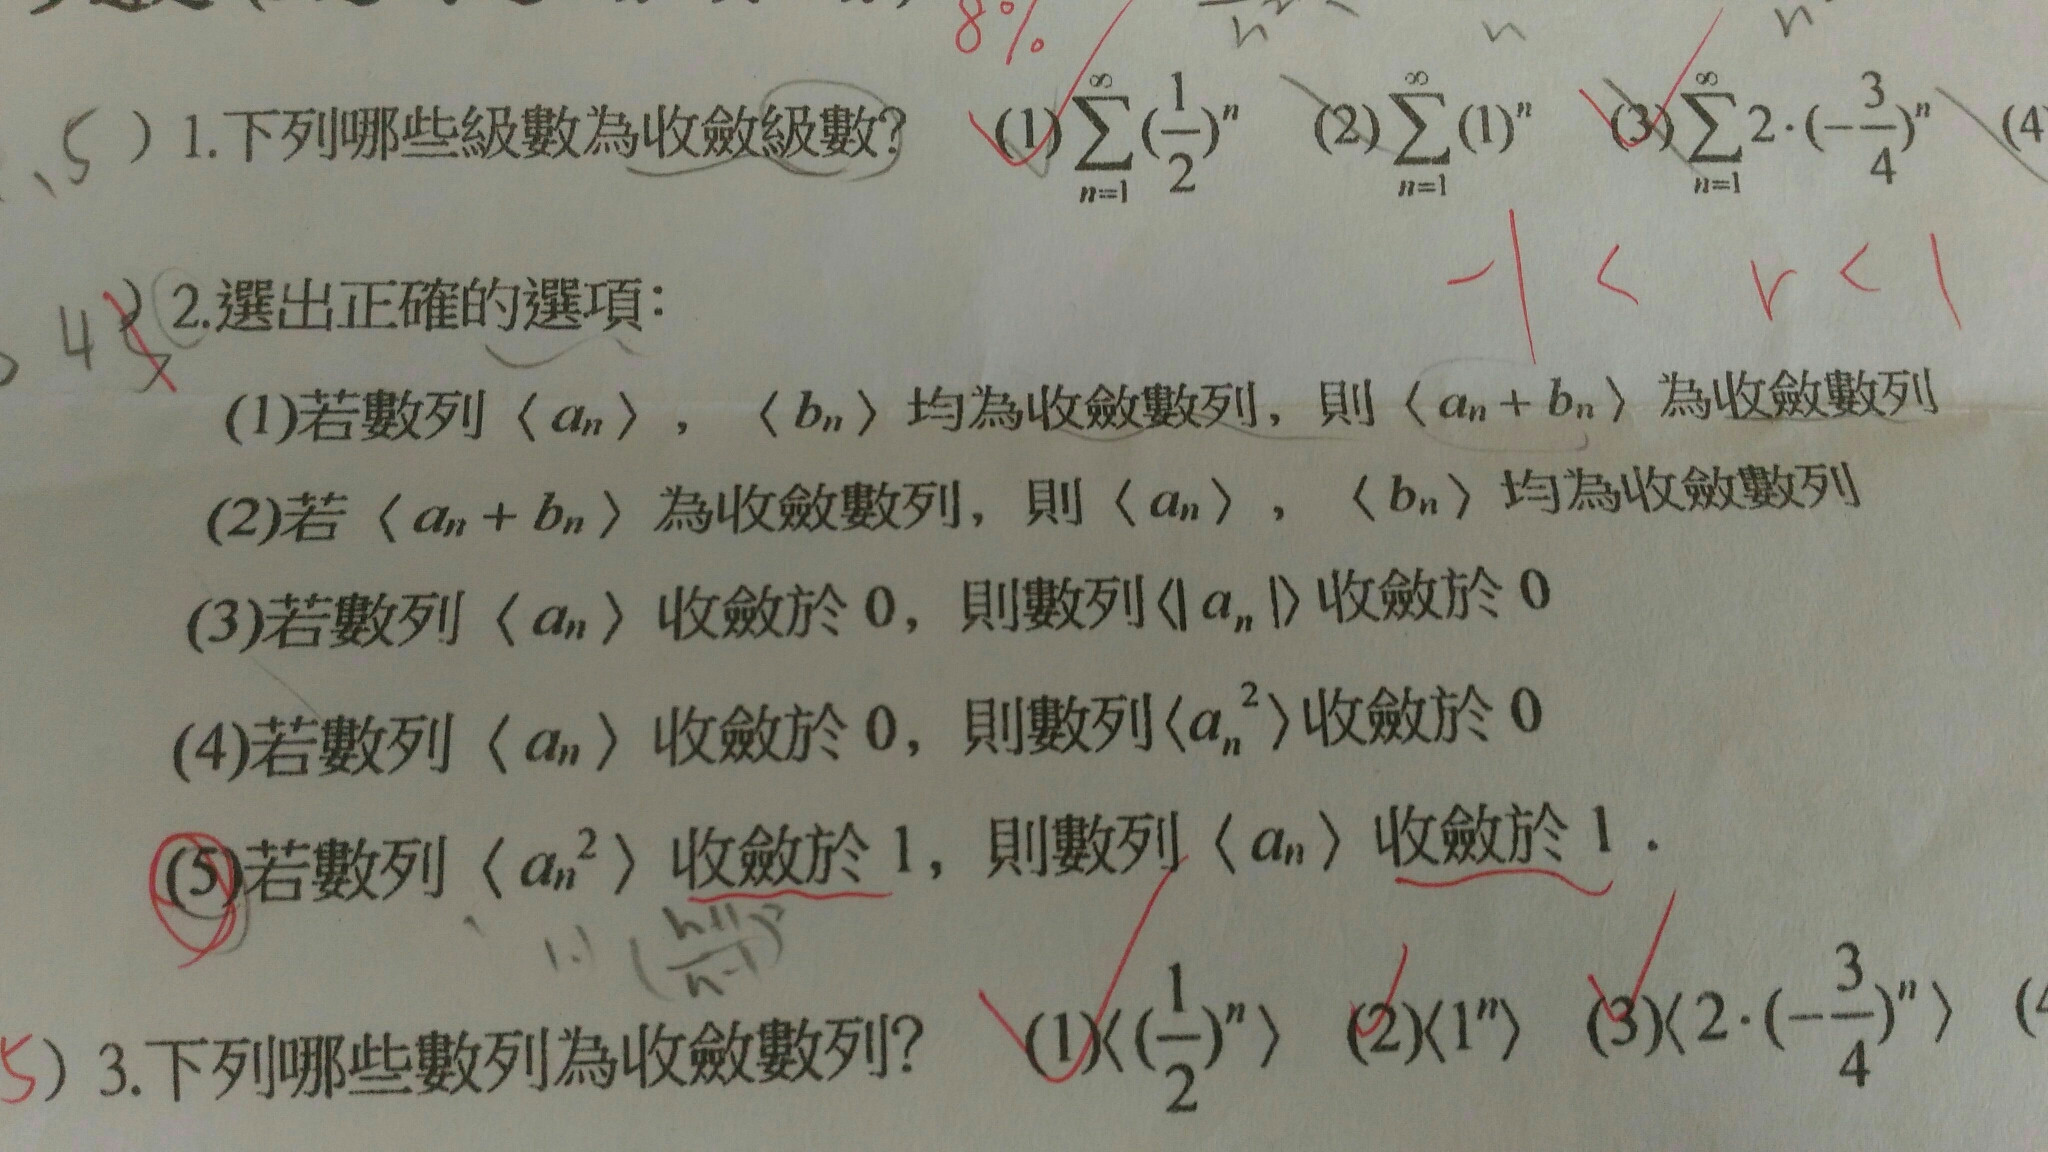 8%
,5 ) 1.下列哪些級數為收斂級數? (1) ∑_{n=1}^{∞} (1/2)^n (2) ∑_{n=1}^{∞} (1)^n (3) ∑_{n=1}^{∞} 2·(-3/4)^n (4
-1 < r < 1
4 5 ) 2.選出正確的選項:
(1)若數列〈a_n〉,〈b_n〉均為收斂數列,則〈a_n + b_n〉為收斂數列
(2)若〈a_n + b_n〉為收斂數列,則〈a_n〉,〈b_n〉均為收斂數列
(3)若數列〈a_n〉收斂於 0,則數列〈|a_n|〉收斂於 0
(4)若數列〈a_n〉收斂於 0,則數列〈a_n^2〉收斂於 0
(5)若數列〈a_n^2〉收斂於 1,則數列〈a_n〉收斂於 1.
(n+1/n-1)^2
5) 3.下列哪些數列為收斂數列? (1)〈(1/2)^n〉 (2)〈1^n〉 (3)〈2·(-3/4)^n〉 (4